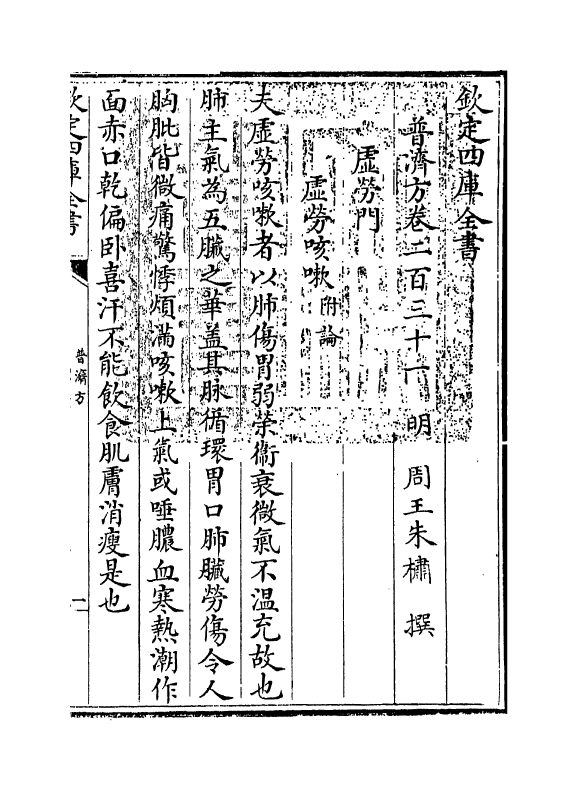 欽定四庫全書
普濟方卷二百三十一 明 周王朱橚 撰
虛勞門
虛勞咳嗽附論
夫虛勞咳嗽者以肺傷胃弱榮衞衰微氣不溫充故也
肺主氣為五臟之華盖其脉循環胃口肺臟勞傷令人
胸肶皆微痛驚悸煩滿咳嗽上氣或唾膿血寒熱潮作
面赤口乾偏卧喜汗不能飲食肌膚消瘦是也
欽定四庫全書
普濟方
一